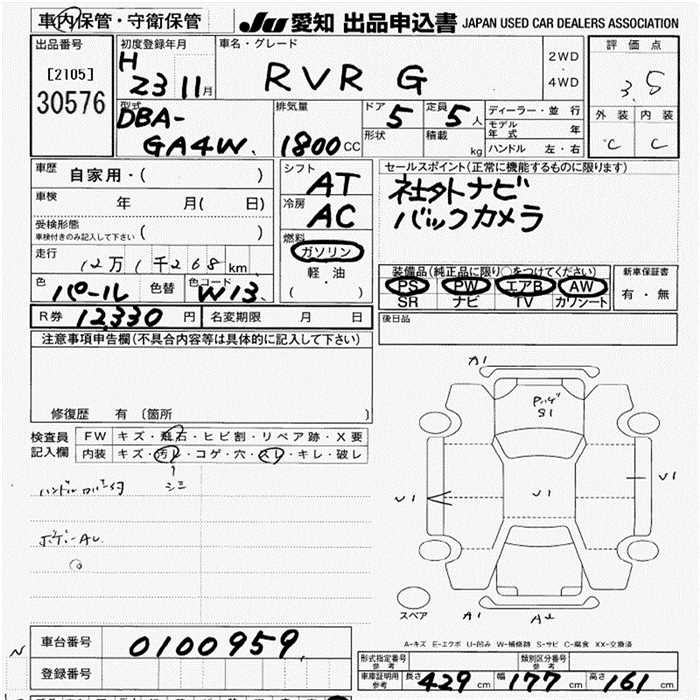 車内保管・守衛保管
JU 愛知 出品申込書 JAPAN USED CAR DEALERS ASSOCIATION
出品番号 初度登録年月 車名・グレード 2WD 評価点
[2105] H 23 11月 RVR G 4WD 3.5
30576
型式 排気量 ドア 5 定員 5人 ディーラー・並行 外装 内装
DBA- 形状 積載 kg モデル年式 年 C C
GA4W. 1800CC ハンドル 左・右
車歴 自家用・( ) シフト AT セールスポイント(正常に機能するものに限ります)
車検 年 月( 日) 冷房 AC 社外ナビ
受検形態 バックカメラ
車検付きのみ記入して下さい ( ) 燃料
走行 12万1千268km ガソリン
軽・油
( ・ )
装備品(純正品に限り○をつけてください) 新車保証書
色 パール 色替 色コード W13. PS PW エアB AW 有・無
SR ナビ TV カワシート
R券 12,330円 名変期限 月 日 後日品
注意事項申告欄(不具合内容等は具体的に記入して下さい)
修復歴 有 〔箇所 〕
検査員 FW キズ・飛石・ヒビ割・リペア跡・X要
記入欄 内装 キズ・汚レ・コゲ・穴・スレ・キレ・破レ
シミ
ボデーAU
A1
S1
U1 U1 U1
スペア A1 A2
A-キズ E-エクボ U-凹み W-補修跡 S-サビ C-腐食 XX-交換済
N 車台番号 0100959
登録番号
形式指定番号 参考 類別区分番号 参考
車庫証明用 参考 長さ 429cm 幅 177cm 高さ 161cm